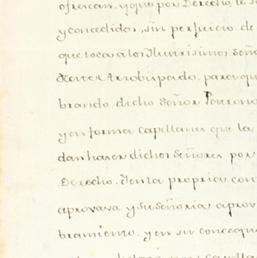 ofrescan, y que por Derecho le s
y concedidos, sin perjuicio de
que toca a los Ilustrisimos Seño
este Arzobispado, para que
brando dicho Señor Patrono
y en forma Capellanes que la
dan hacer dichos Señores por
Derecho. Y en la propria con
aprovava y su señoria aprov
bramiento, y en su conseque